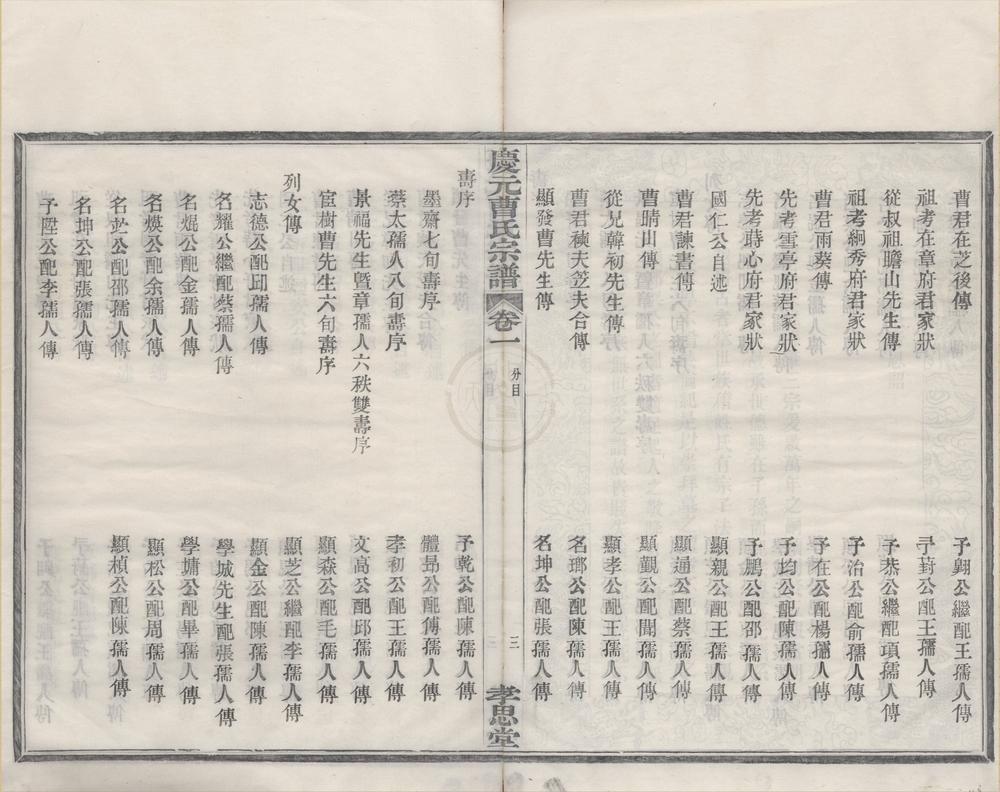 曹君在芝後傳
祖考在章府君家狀
從叔祖瞻山先生傳
祖考絅秀府君家狀
曹君雨葵傳
先考雲亭府君家狀
先考蒔心府君家狀
國仁公自述
曹君諫書傳
曹晴山傳
從兄韓初先生傳
曹君積夫笠夫合傳
顯發曹先生傳
慶元曹氏宗譜
卷一
分目
三
孝思堂
壽序
墨齋七旬壽序
蔡太孺人八旬壽序
景福先生暨章孺人六秩雙壽序
宦樹曹先生六旬壽序
列女傳
志德公配邱孺人傳
名耀公繼配蔡孺人傳
名焜公配金孺人傳
名煐公配余孺人傳
公配邵孺人傳
名坤公配張孺人傳
予陞公配李孺人傳
予翺公繼配王孺人傳
予葑公配王孺人傳
予恭公繼配項孺人傳
予治公配俞孺人傳
予在公配楊孺人傳
予均公配陳孺人傳
予鵬公配邵孺人傳
顯親公配王孺人傳
顯通公配蔡孺人傳
顯觀公配聞孺人傳
顯孝公配王孺人傳
名瑯公配陳孺人傳
名坤公配張孺人傳
予乾公配陳孺人傳
體昂公配傅孺人傳
孝初公配王孺人傳
文高公配邱孺人傳
顯森公配毛孺人傳
顯芝公繼配李孺人傳
顯金公配陳孺人傳
學城先生配張孺人傳
學墉公配畢孺人傳
顯松公配周孺人傳
顯楨公配陳孺人傳